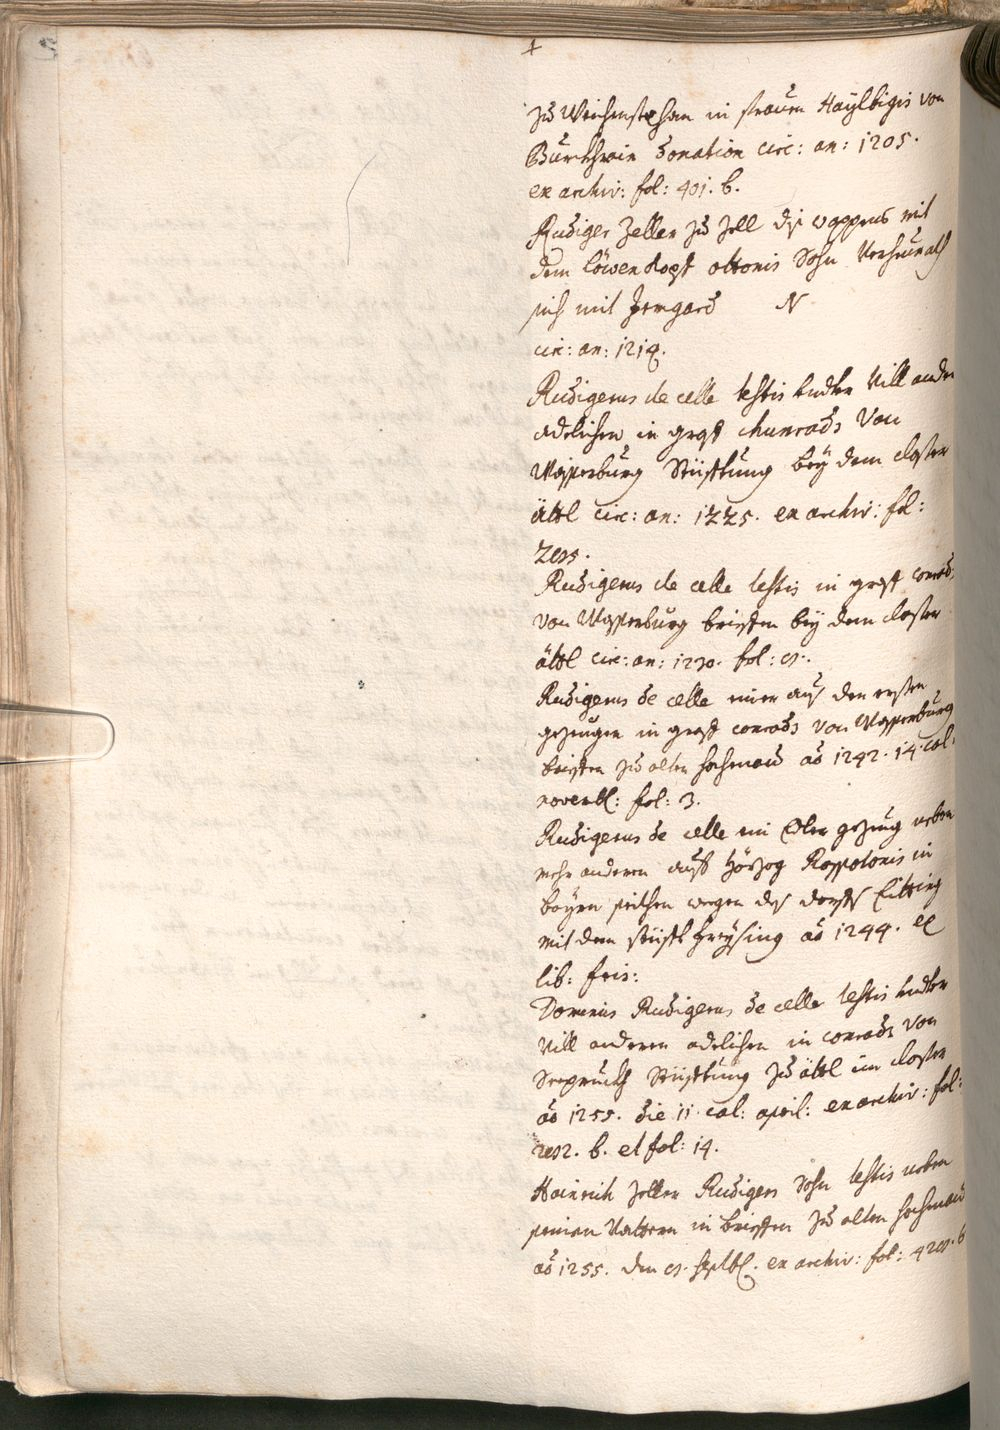 zu Weichenstephan in frauen Haylbigis von
Burckhrain donation circ: an: 1205.
ex archiv: fol: 401. b.
Rudiger Zeller zu Zell diß wappens mit
dem löwen kopf ottonis Sohn Verheurath
sich mit Irmgard N
circ: an: 1214.
Rudigerus de celle testis under Vill andern
adelichen in graf chunrads Von
Wasserburg Stüfftung bey dem closter
ättl circ: an: 1225. ex archiv: fol:

Rudigerus de celle testis in graf conrads
von Wasserburg brieffen bey dem closter
ättl circ: an: 1230. fol:
Rudigerus de celle einer auß den ersten
gezeugen in graf conrads von Wasserburg
brieffen zu alten hochenau ao 1242. 14. cal:
novembl: fol: 3.
Rudigerus de celle ein Edler gezeug neben
mehr anderen auß hörzog in
bayrn wegen des dorfs Eitting
mit dem stüfft freysing ao 1244. ex
lib: fris:
Dominus Rudigerus de celle testis under
Vill anderen adelichen in conrads von
Stüfftung zu ättl im closter
ao 1255. die 11. cal: april: ex archiv: fol:
b. et fol: 14.
Hainrich Zeller Rudigers Sohn testis neben
seinen Vattern in brieffen zu alten hochenau
ao 1255. den septbl. ex archiv: fol: